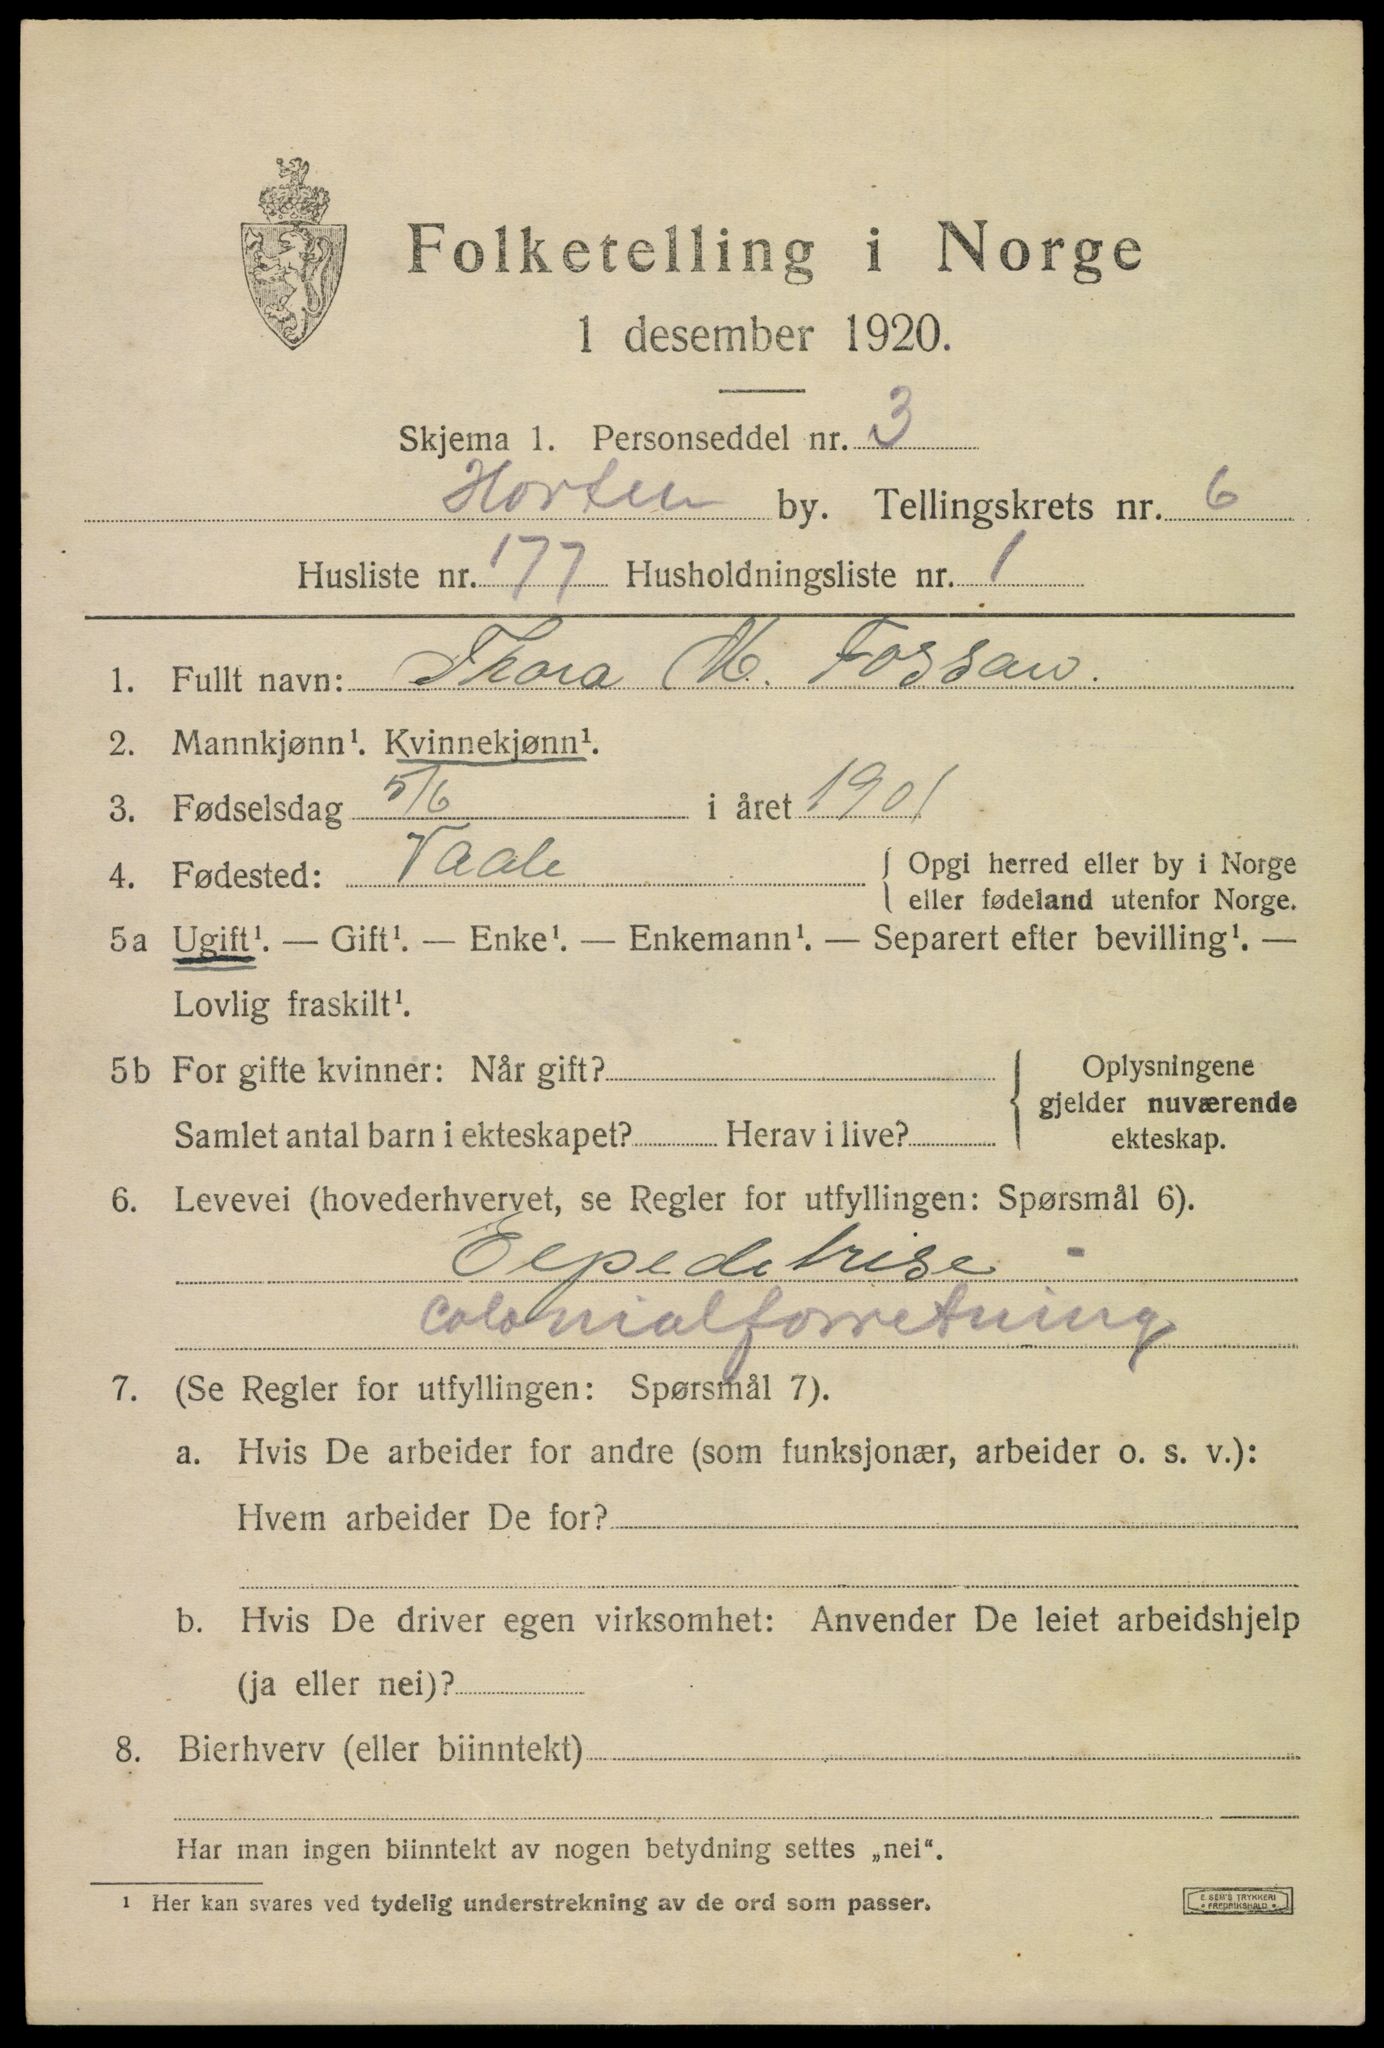 Folketelling i Norge
1 desember 1920.
Skjema 1. Personseddel nr. 3
Horten by. Tellingskrets nr. 6
Husliste nr. 177 Husholdningsliste nr. 1
1. Fullt navn: Thora M. Fossan.
2. Mannkjønn¹. Kvinnekjønn¹.
3. Fødselsdag 5/6 i året 1901
4. Fødested: Vaale { Opgi herred eller by i Norge
eller fødeland utenfor Norge.
5a Ugift¹. — Gift¹. — Enke¹. — Enkemann¹. — Separert efter bevilling¹. —
Lovlig fraskilt¹.
5b For gifte kvinner: Når gift? } Oplysningene
gjelder nuværende
Samlet antal barn i ekteskapet? Herav i live? ekteskap.
6. Levevei (hovederhvervet, se Regler for utfyllingen: Spørsmål 6).
Expeditrise -
Colonialforretning
7. (Se Regler for utfyllingen: Spørsmål 7).
a. Hvis De arbeider for andre (som funksjonær, arbeider o. s. v.):
Hvem arbeider De for?
b. Hvis De driver egen virksomhet: Anvender De leiet arbeidshjelp
(ja eller nei)?
8. Bierhverv (eller biinntekt)
Har man ingen biinntekt av nogen betydning settes „nei“.
¹ Her kan svares ved tydelig understrekning av de ord som passer.
E. SEM'S TRYKKERI
FREDRIKSHALD